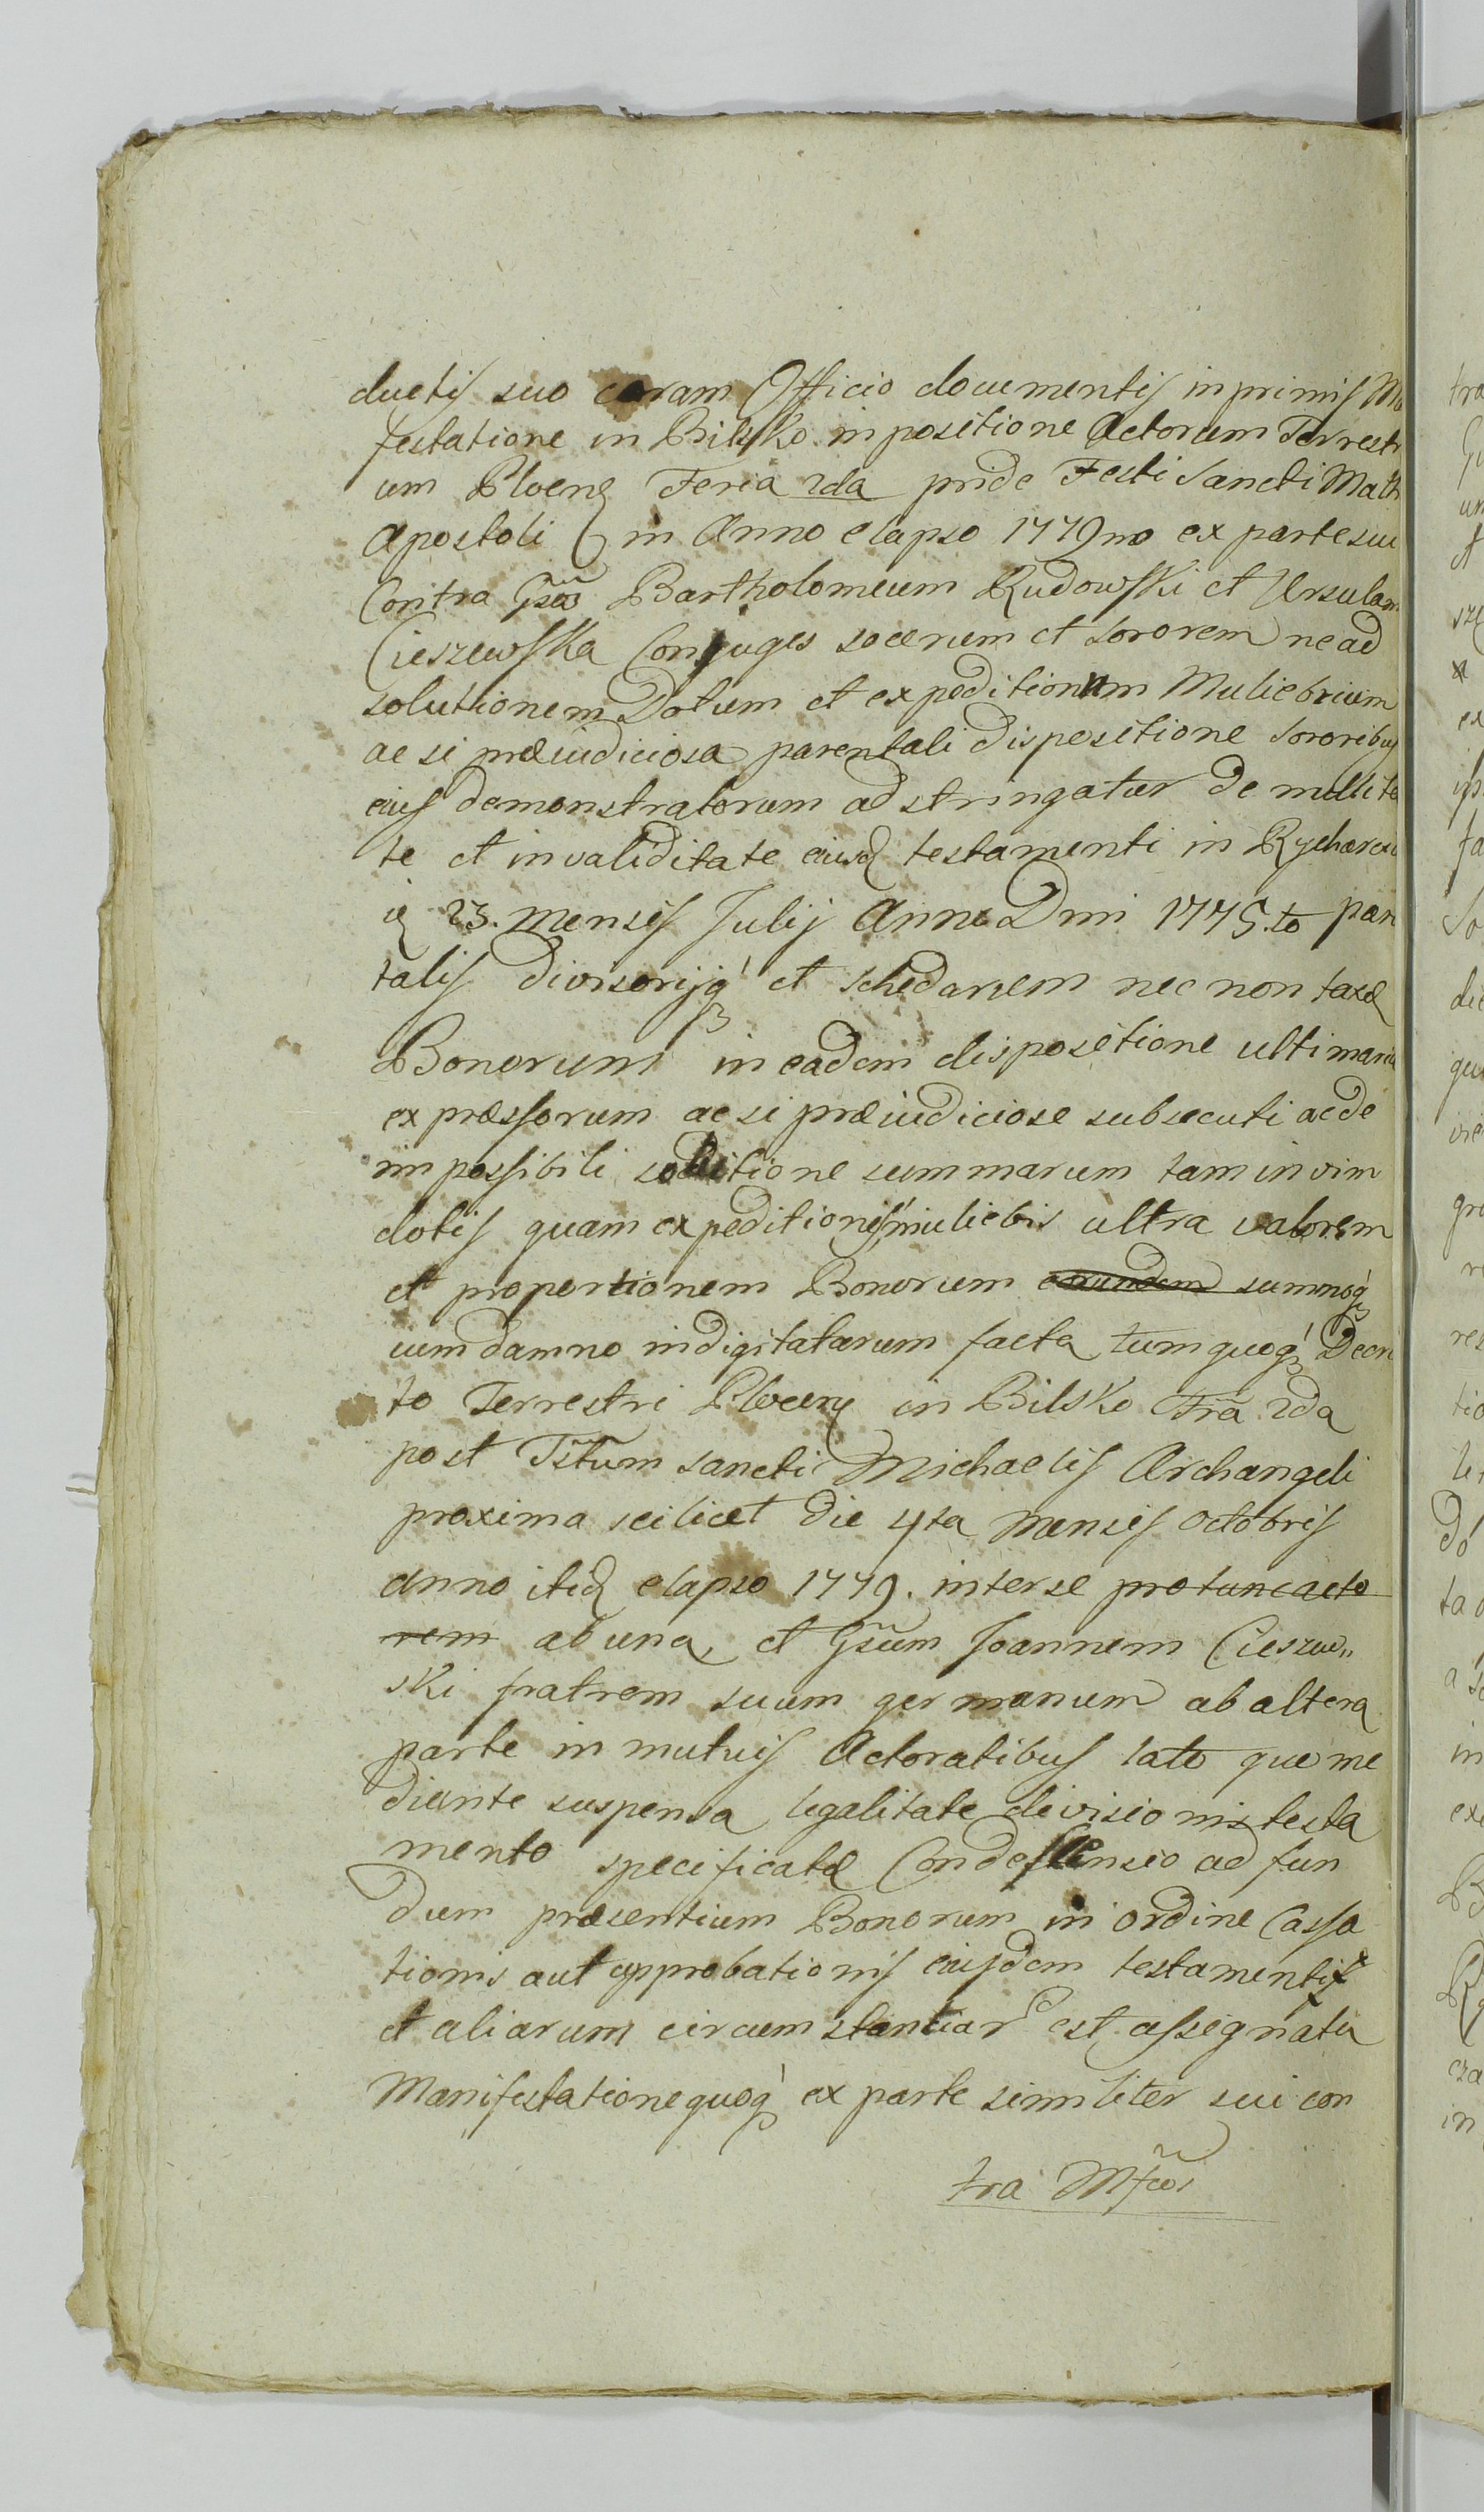 ductis suo coram Officio documentis inprimis Ma
festatione in Bilsko in positione Actorum Terrestr
um Plocen Feria 2da pride Festi Sancti Math
Apostoli in Anno elapso 1779no ex parte sui
Contra Gsos Bartholomeum Rudowski et Ursulam
Cieszewska Conjuges socerum et sororem ne ad
solutionem Dotum et expeditionum Muliebrium
ac si præiudiciosa parentali dispositione sororibus
eius demonstratorum adstringatur de nullita
te et invaliditate eiusd testamenti in Rycharcic
ie 23. mensis Julij Anno Dni 1775.to par
talis divisorijq et schedarum nec non taxæ
Bonorum in eadem dispositione ultimaria
expræssorum ac si præiudiciose subsecuti ac de
impossibili solutione summarum tam in vim
dotis quam expeditionis muliebis ultra valorem
et proportionem Bonorum earundem summoq
cum damno indigitatarum facta tum quoq Decre
to Terrestri Plocen in Bilsko Fra 2da
post Fstum sancti Michaelis Archangeli
proxima scilicet die 4ta mensis octobris
anno itid elapso 1779. inter se pro tunc acto
rem ab una, et Gsum Joannem Cieszew„
ski fratrem suum germanum ab altera
parte in mutuis Actoratibus lato quo me
diante suspensa legalitate divisionis testa
mento specificatæ Condescensio ad fun
dum præsentium Bonorum in ordine Cassa
tionis aut approbationis eiusdem testamenti
et aliarum circumstantiar est assegnata
Manifestatione quoq ex parte similiter sui con
tra Mfcos